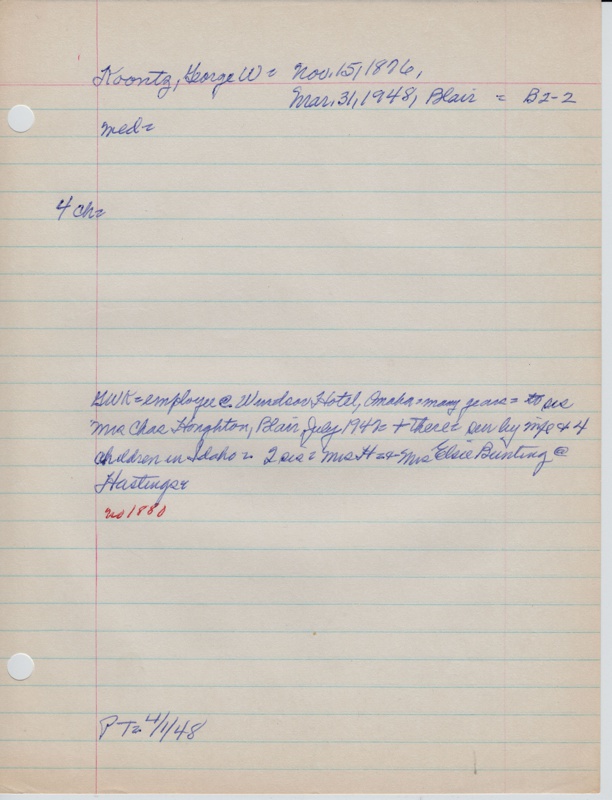 Koontz, George W = Nov. 15, 1876,
Mar. 31, 1948, Blair = B2-2
med=
4 ch=
GWK = employee @ Windsor Hotel, Omaha = many years = to sis
Mrs Chas Houghton, Blair, July 1947 = + there = sur by wife + 4
children in Idaho = 2 sis = Mrs H = + Mrs Elsie Bunting @
Hastings =
no 1880
PT = 4/1/48